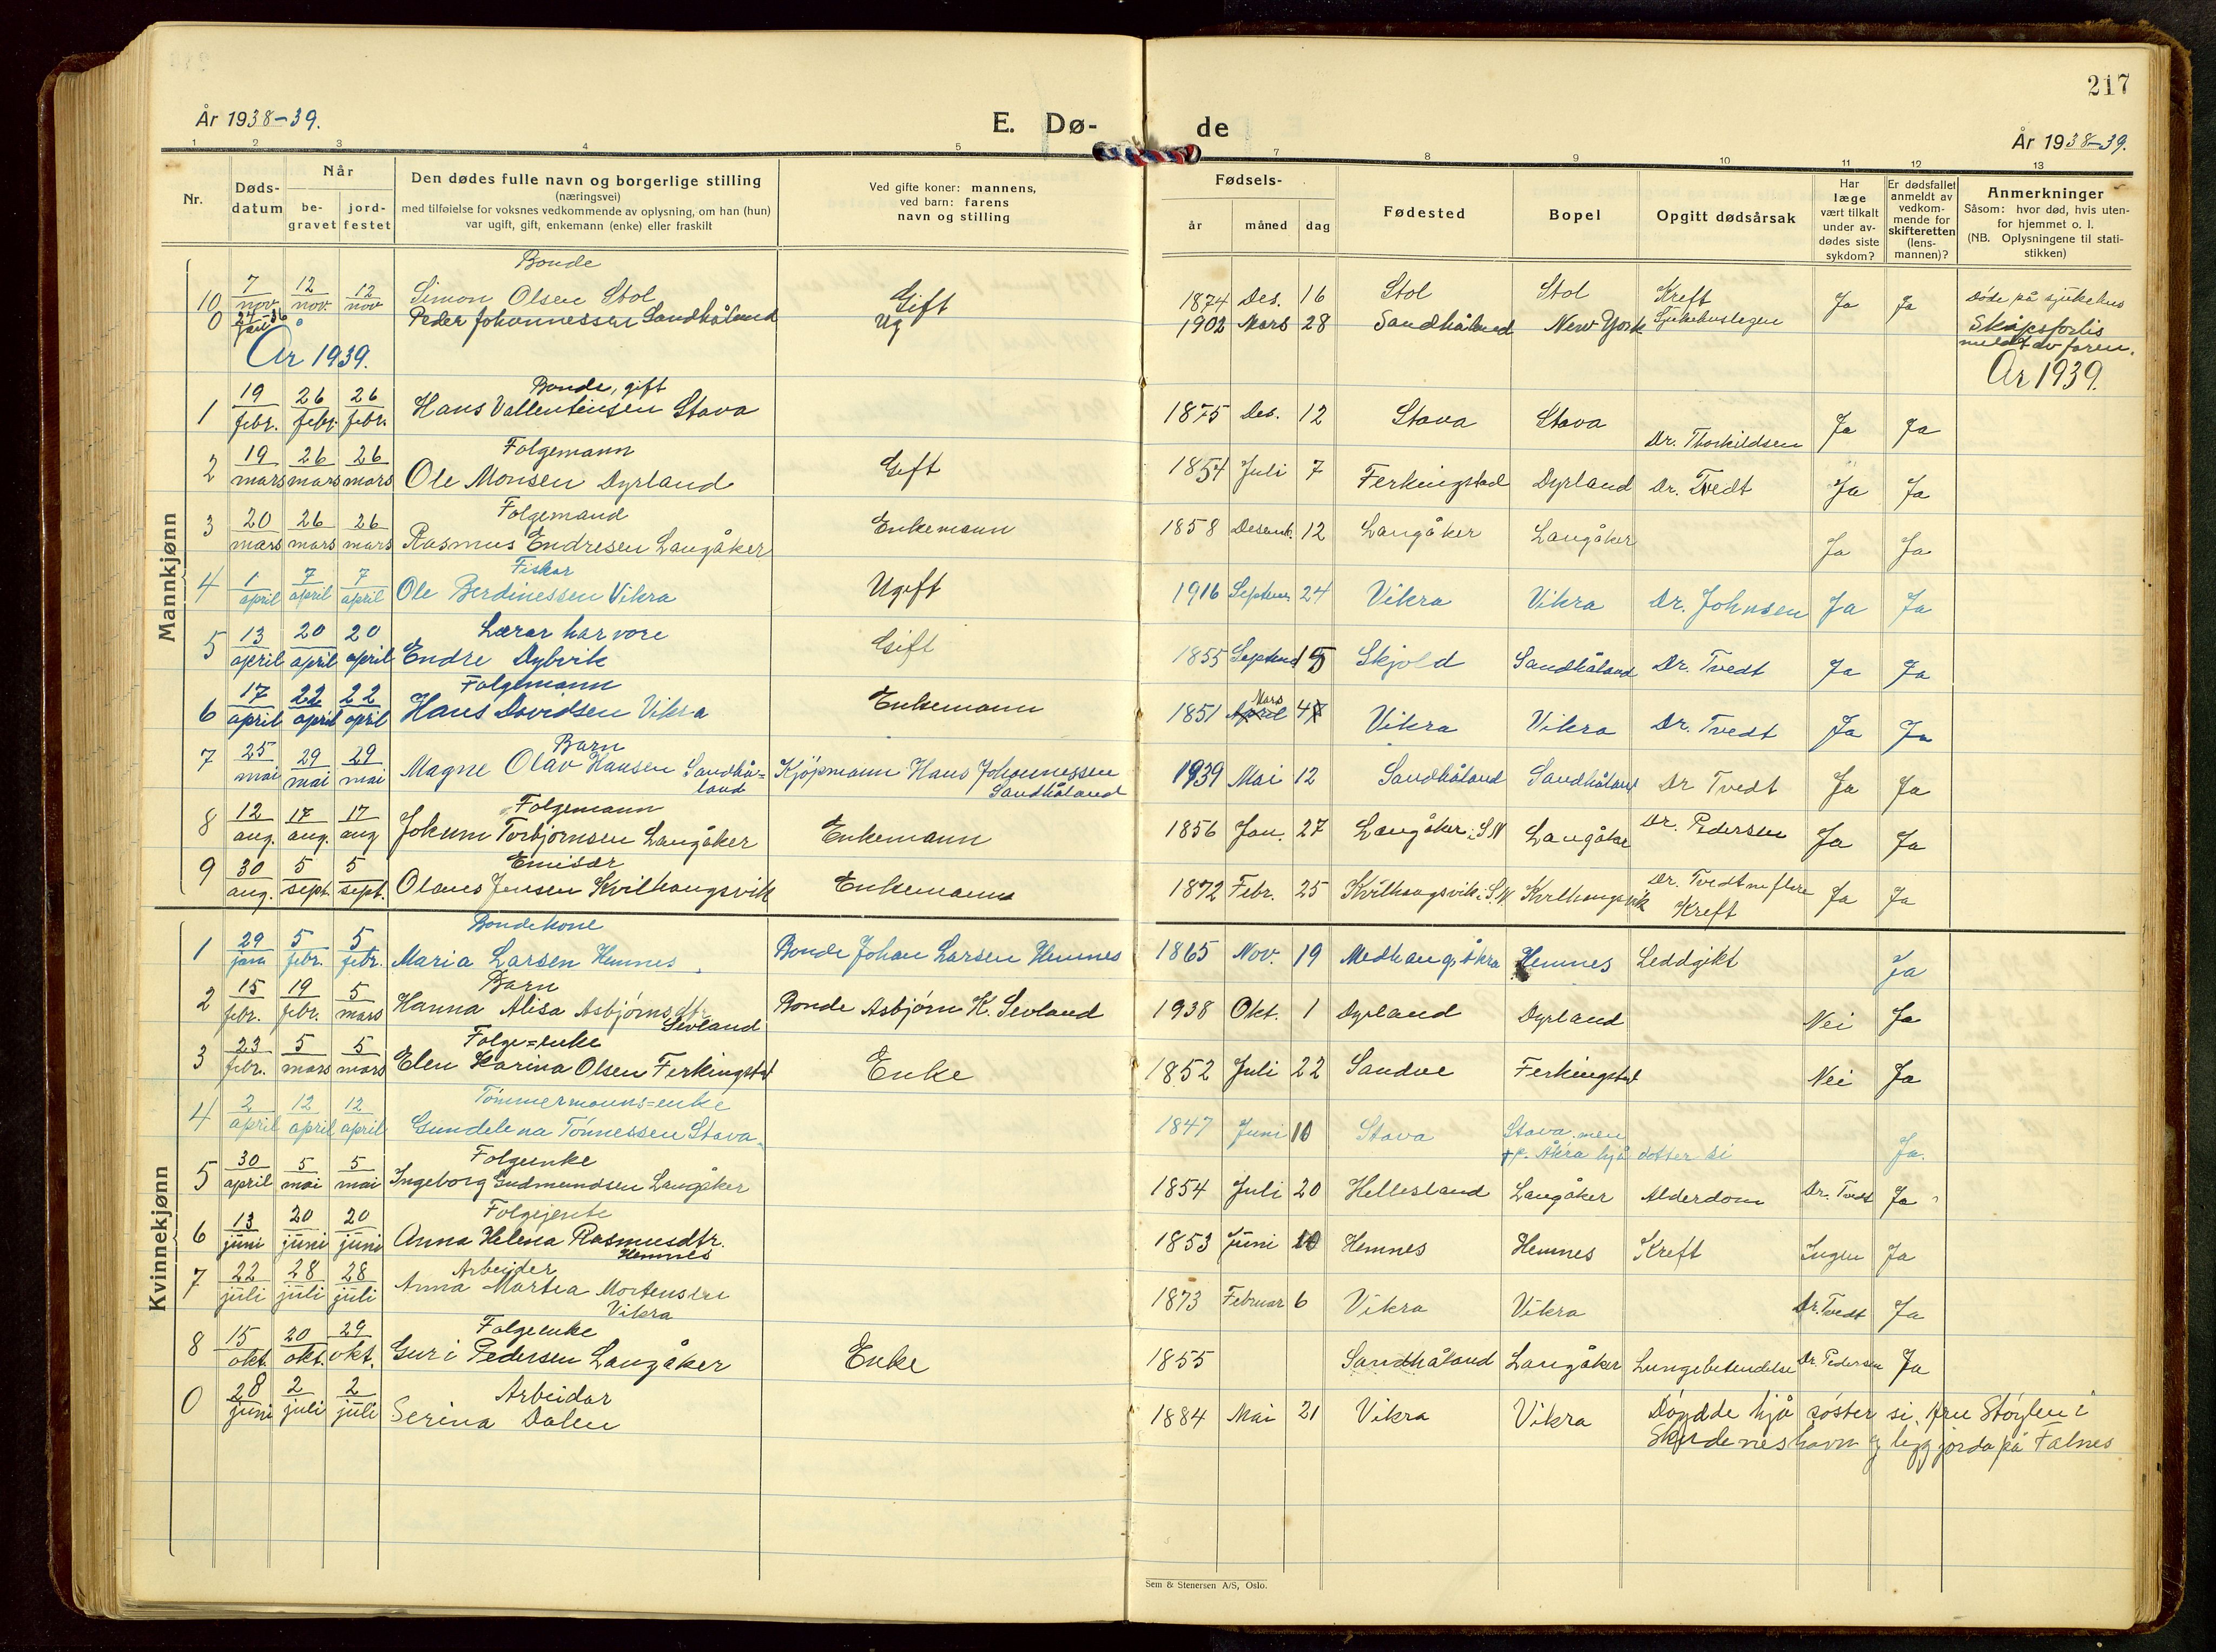 217
År 1938-39.
E. Dø-
de
År 1938-39.
1 2 3 4 5 7 8 9 10 11 12 13
Nr.
Døds-
datum
Når
be-
gravet
jord-
festet
Den dødes fulle navn og borgerlige stilling
(næringsvei)
med tilføielse for voksnes vedkommende av oplysning, om han (hun)
var ugift, gift, enkemann (enke) eller fraskilt
Ved gifte koner: mannens,
ved barn: farens
navn og stilling
Fødsels-
år måned dag
Fødested
Bopel
Opgitt dødsårsak
Har
læge
vært tilkalt
under av-
dødes siste
sykdom?
Er dødsfallet
anmeldt av
vedkom-
mende for
skifteretten
(lens-
mannen)?
Anmerkninger
Såsom: hvor død, hvis uten-
for hjemmet o. l.
(NB. Oplysningene til stati-
stikken)
Mannkjønn
Bonde
10 7 nov. 12 nov. 12 nov Simon Olsen Stol Gift 1874 Des. 16 Stol Stol Kreft Ja Ja Døde på sjukehus
0 24-36 Peder Johannessen Sandhåland Ug 1902 Mars 28 Sandhåland New York Sjukehuslegen Skipsforlis
meldt av faren.
År 1939. År 1939.
Bonde, gift
1 19 febr. 26 febr. 26 febr. Hans Vallentinsen Stava 1875 Des. 12 Stava Stava Dr. Thorkildsen Ja Ja
Folgemann
2 19 mars 26 mars 26 mars Ole Monsen Dyrland Gift 1854 Juli 7 Ferkingstad Dyrland Dr. Tvedt Ja Ja
Folgemand
3 20 mars 26 mars 26 mars Rasmus Endresen Langåker Enkemann 1858 Desemb. 12 Langåker Langåker Ja Ja
Fiskar
4 1 april 7 april 7 april Ole Berdinessen Vikra Ugift 1916 Septem 24 Vikra Vikra Dr. Johnsen Ja Ja
Lærar har vore
5 13 april 20 april 20 april Endre Dybvik Gift 1855 Septemb 15 Skjold Sandhåland Dr. Tvedt Ja Ja
Folgemann
6 17 april 22 april 22 april Hans Davidsen Vikra Enkemann 1851 April Mars 4 Vikra Vikra Dr. Tvedt Ja Ja
Barn
7 25 mai 29 mai 29 mai Magne Olav Hansen Sandhå=
land Kjöpmann Hans Johannessen
Sandhåland 1939 Mai 12 Sandhåland Sandhåland Dr Tvedt Ja Ja
Folgemann
8 12 aug. 17 aug. 17 aug Jokum Torbjørnsen Langåker Enkemann 1856 Jan. 27 Langåker i S.N Langåker Dr. Pedersen Ja Ja
Emisær
9 30 aug. 5 sept. 5 sept. Olaus Jensen Kvilhaugsvik Enkemann 1872 Febr. 25 Kvilhaugsvik i S.N Kvilhaugsvik Dr. Tvedt m flere
Kreft Ja Ja
Kvinnekjønn
Bondekone
1 29 jan 5 febr. 5 febr. Maria Larsen Hemnes Bonde Johan Larsen Hemnes 1865 Nov. 19 Medhaug, åkra Hemnes Leddgikt Ja
Barn
2 15 febr. 19 febr. 5 mars Hanna Alisa Asbjørnsdtr
Sevland Bonde Asbjørn K. Sevland 1938 Okt. 1 Dyrland Dyrland Nei Ja
Folge=enke
3 23 febr. 5 mars 5 mars Elen Karina Olsen Ferkingstad Enke 1852 Juli 22 Sandve Ferkingstad Nei Ja
Tømmermanns=enke
4 2 april 12 april 12 april Gundelena Tønnessen Stava 1847 Juni 10 Stava Stava, men
p. Åkra hjå dotter si Ja.
Folgeenke
5 30 april 5 mai 5 mai Ingeborg Gudmundsen Langåker 1854 Juli 20 Hellesland Langåker Alderdom Dr. Tvedt Ja
Folgejente
6 13 juni 20 juni 20 juni Anna Helena Rasmusdtr.
Hemnes 1853 Juni 10 Hemnes Hemnes Kreft Ingen Ja
Arbeider
7 22 juli 28 juli 28 juli Anna Martia Mortensen
Vikra 1873 Februar 6 Vikra Vikra Dr. Tvedt Ja
Folgeenke
8 15 okt. 20 okt. 29 okt. Guri Pedersen Langåker Enke 1855 Sandhåland Langåker Lungebetendelse Dr. Pedersen Ja
Arbeidar
0 28 juni 2 juli 2 juli Serina Dalen 1884 Mai 21 Vikra Vikra Döydde hjå söster si, fru Stöylen i
Skudeneshavn og ligg jorda på Falnes
Sem & Stenersen A/S, Oslo.